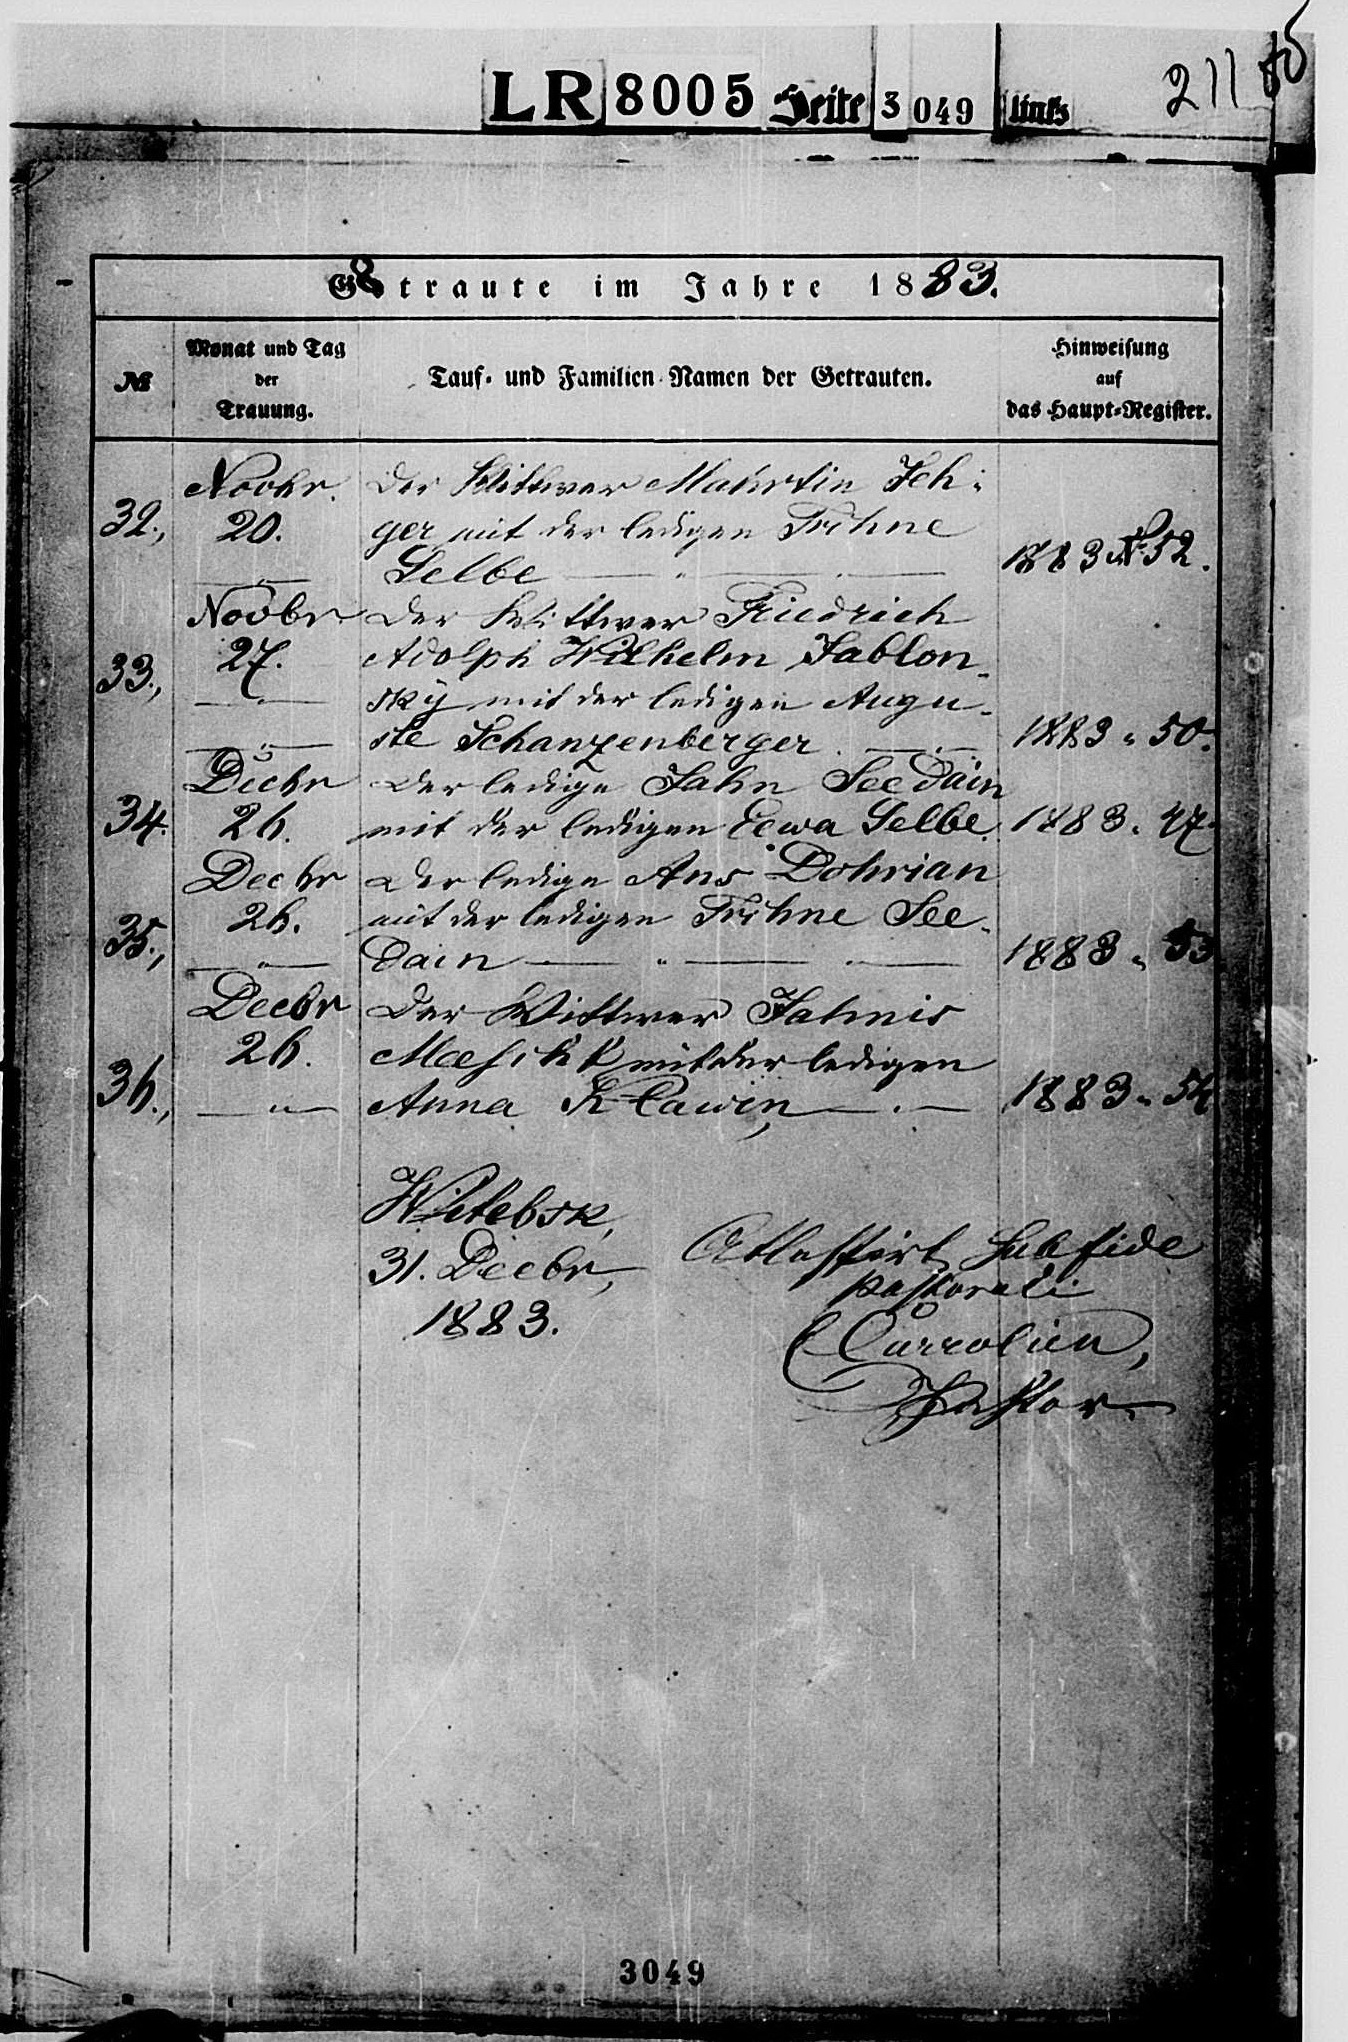 LR 8005 Seite 3 049 links
211
Getraute im Jahre 1883.
№ Monat und Tag der Trauung. Tauf- und Familien-Namen der Getrauten. Hinweisung auf das Haupt-Register.
Novbr. Der Wittwer Mahrtin Jeh-
32., 20. ger mit der ledigen Trihne
Selbe 1883 № 52.
Novbr Der Wittwer Friedrich
33., 27. Adolph Wilhelm Jablon-
sky mit der ledigen Augu-
ste Schanzenberger. 1883 " 50.
Decbr Der ledige Jahn Seedain
34. 26. mit der ledigen Eewa Selbe. 1883 " 47.
Decbr Der ledige Ans Dohrian
35., 26. mit der ledigen Trihne See-
dain 1883 " 53
Decbr Der Wittwer Jahnis
26. mit der ledigen
36., Anna Klawin, 1883 " 54
Witebsk,
31. Decbr,
1883.
Attestirt sub fide
pastorali
Pastor
3049